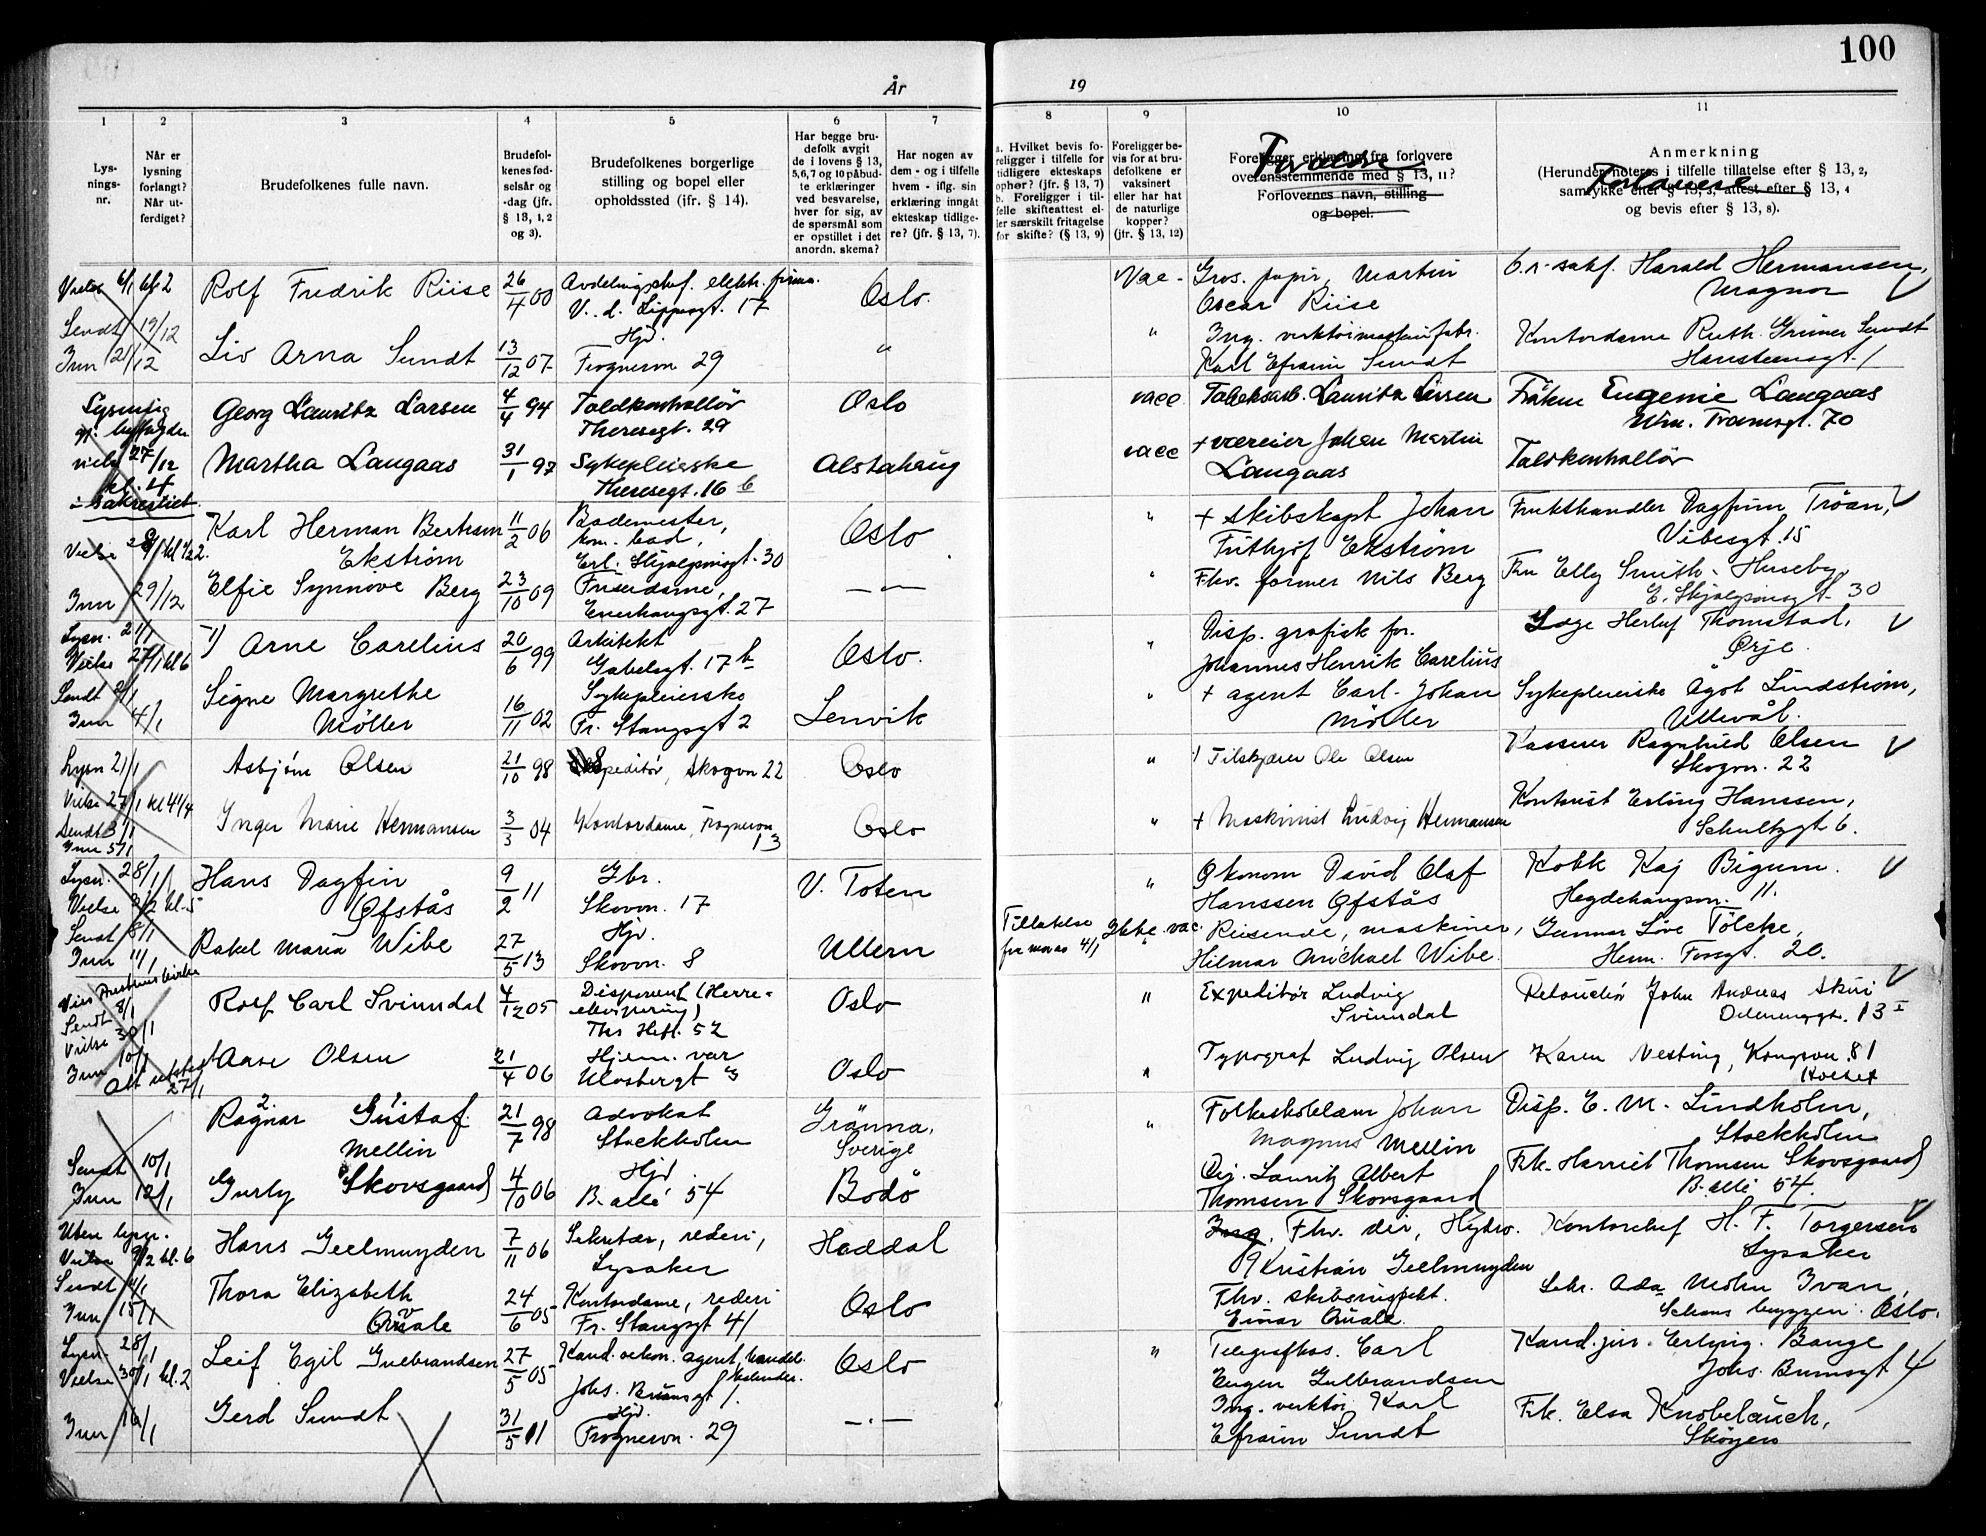 100
År
19
1
2
3
4
5
6
7
8
9
10
11
Lys-
nings-
nr.
Når er
lysning
forlangt?
Når ut-
ferdiget?
Brudefolkenes fulle navn.
Brudefol-
kenes fød-
selsår og
-dag (jfr.
§ 13, 1, 2
og 3).
Brudefolkenes borgerlige
stilling og bopel eller
opholdssted (ifr. § 14).
Har begge bru-
defolk avgit
de i lovens § 13,
5,6,7 og 10 påbud-
te erklæringer
ved besvarelse,
hver for sig, av
de spørsmål som
er opstillet i det
anordn. skema?
Har nogen av
dem - og i tilfelle
hvem - iflg. sin
erklæring inngått
ekteskap tidlige-
re? (jfr. § 13, 7).
a. Hvilket bevis fo-
religger i tilfelle for
tidligere ekteskaps
ophør? (jfr. § 13, 7)
b. Foreligger i til-
felle skifteattest el-
ler særskilt fritagelse
for skifte? (§ 13, 9)
Foreligger be-
vis for at bru-
defolkene er
vaksinert
eller har hat
de naturlige
kopper?
(jfr. § 13, 12)
Foreligger erklæring fra forlovere
overensstemmende med § 13, 11?
Forlovernes navn, stilling
og bopel.
Anmerkning
(Herunder noteres i tilfelle tillatelse efter § 13, 2,
samtykke efter § 13, 3, attest efter § 13, 4
og bevis efter § 13, 8).
Forlovere
Vielse 6/1 kl 2
Sendt 19/12
Inn 21/12
Rolf Fredrik Riise
26/4 00
Avdelingschef. elektr. firma.
V. d. Lippesgt. 17
Oslo.
Vac -
Gros. papir, Martin
Oscar Riise
Harald Hermansen,
Magnor
Liv Arna Sundt
13/12 07
Hjv.
Frognervn 29
"
"
Ing. verktøimaskinfabr.
Karl Efraim Sundt
Kontordame Ruth Grüner Sundt
Hansteensgt. 1
vielse 27/12
kl. 4
i sakristiet.
Georg Lauritz Larsen
4/4 94
Toldkontrollør
Theresegt. 29
Oslo
vacc
Lauritz Larsen
Frøken Eugenie Langaas
Wm. Tranesgt. 70
Martha Langaas
31/1 97
Sykepleierske
Theresegt. 16 b
Alstahaug
vacc
+ væreier Johan Martin
Langaas
Toldkontrollør
Inn 29/12
Karl Herman Bertram
Ekstrøm
11/2 06
Bademester,
kom. bad,
Erl. Skjalgssonsgt. 30
Oslo
"
+ skibskapt Johan
Frithjof Ekstrøm
Frukthandler Dagfinn Trøan,
Vibesgt. 15
Elfie Synnøve Berg
23/10 09
Friserdame,
Enerhaugsgt. 27
— " —
"
Fhv. former Nils Berg
Fru Elly Smith-Huseby
E. Skjalgssonsgt. 30
Lysn. 21/1
Vielse 27/1 kl 6
Sendt 2/1
Inn 4/1
1) Arne Carelius
20/6 99
Arkitekt
Gabelsgt. 17 b
Oslo.
"
Disp. grafisk for.
Johannes Henrik Carelius
Læge Herluf Thomstad,
Ørje.
Signe Margrethe
Möller
16/11 02
Sykepleierske
Fr. Stangsgt 2
Lenvik
"
+ agent Carl-Johan
Möller
Sykepleierske Ågot Lindstrøm,
Ullevål.
Lysn 21/1
Vielse 27/1 kl 4 1/4
Sendt 3/1
Inn 5/1
Asbjørn Olsen
21/10 98
Ekspeditør, Skogvn 22
Oslo
"
Tilskjærer Ole Olsen
Kasserer Ragnhild Olsen
Skogvn. 22
Inger Marie Hermansen
3/3 04
Kontordame, Frognervn
13
Oslo
"
+ Maskinist Ludvig Hermansen
Kontorist Erling Hanssen,
Schultzgt 6.
Lysn. 28/1
Vielse 2/2 kl. 5
Sendt 8/1
Inn 11/1
Hans Dagfin
Øfstås
9/2 11
Gbr.
Skovvn. 17
V. Toten
"
Økonom David Olaf
Hanssen Øfstås
Kokk Kaj Bigum.
Hegdehaugsvn. 11.
Rakel Maria Wibe
27/5 13
Hjv.
Skovvn. 8
Ullern
Tillatelse
fra moren 4/1
Ikke vac.
Reisende, maskiner,
Hilmar Michael Wibe.
Gunnar Löve Tölcke,
Herm. Fossgt. 20.
Sendt 8/1
Vielse 30/1
Inn 10/1
27/1
Rolf Carl Svinndal
4/12 05
Disponent (Herre-
ekvipering)
Ths Heft. 52
Oslo
"
Expeditør Ludvig
Svinndal
Retouchör John Andreas Skui
13 I
Aase Olsen
21/4 06
Hjem. vær
Ulvsbergt 3
Oslo
"
Typograf Ludvig Olsen
Karen Nesting, Kongsvn. 81
Holset
Sendt 10/1
Inn 12/1
2. 1
Ragnar Gustaf
Mellin
21/7 98
Advokat
Stockholm
Gränna,
Sverige
"
Folkeskolelærer Johan
Magnus Mellin
Disp. E. M. Lindholm,
Stockholm
Gurly Skovsgaard
4/10 06
Hjv
B. allé 54
Bodø
Lauritz Albert
Thomsen Skovsgaard
Frk. Harriet Thomsen Skovsgaard
B. allé 54.
Uten lysn.
Vielse 9/2 kl. 6
Sendt 4/1
Inn 15/1
Hans Geelmuyden
7/11 06
Sekretær, rederi,
Lysaker
Haddal
Ing. Fhv. dir, Hydro.
Kristian Geelmuyden
Kontorchef H. F. Torgersen
Lysaker
Thora Elizabeth
Qvale
24/6 05
Kontordame, rederi
Fr. Stangsgt 41
Oslo
Fhv. skibsinspekt.
Einar Qvale
Sekr. Ada Ivan,
Oslo.
Lysn. 28/1
Vielse 30/1 kl. 2
Inn 16/1
Leif Egil Gulbrandsen
27/5 05
Kand. oekon. agent, handels-
kalender.
Johs. Brunsgt 1.
Oslo
"
Telegrafkas. Carl
Eugen Gulbrandsen
Kand. jur. Erling Bange
Johs. Brunsgt 4
Gerd Sundt
31/5 11
Hjv.
Frognervn. 29
— " —
Ing. verktøi Karl
Efraim Sundt
Frk. Elsa Knobelauch,
Skøyen